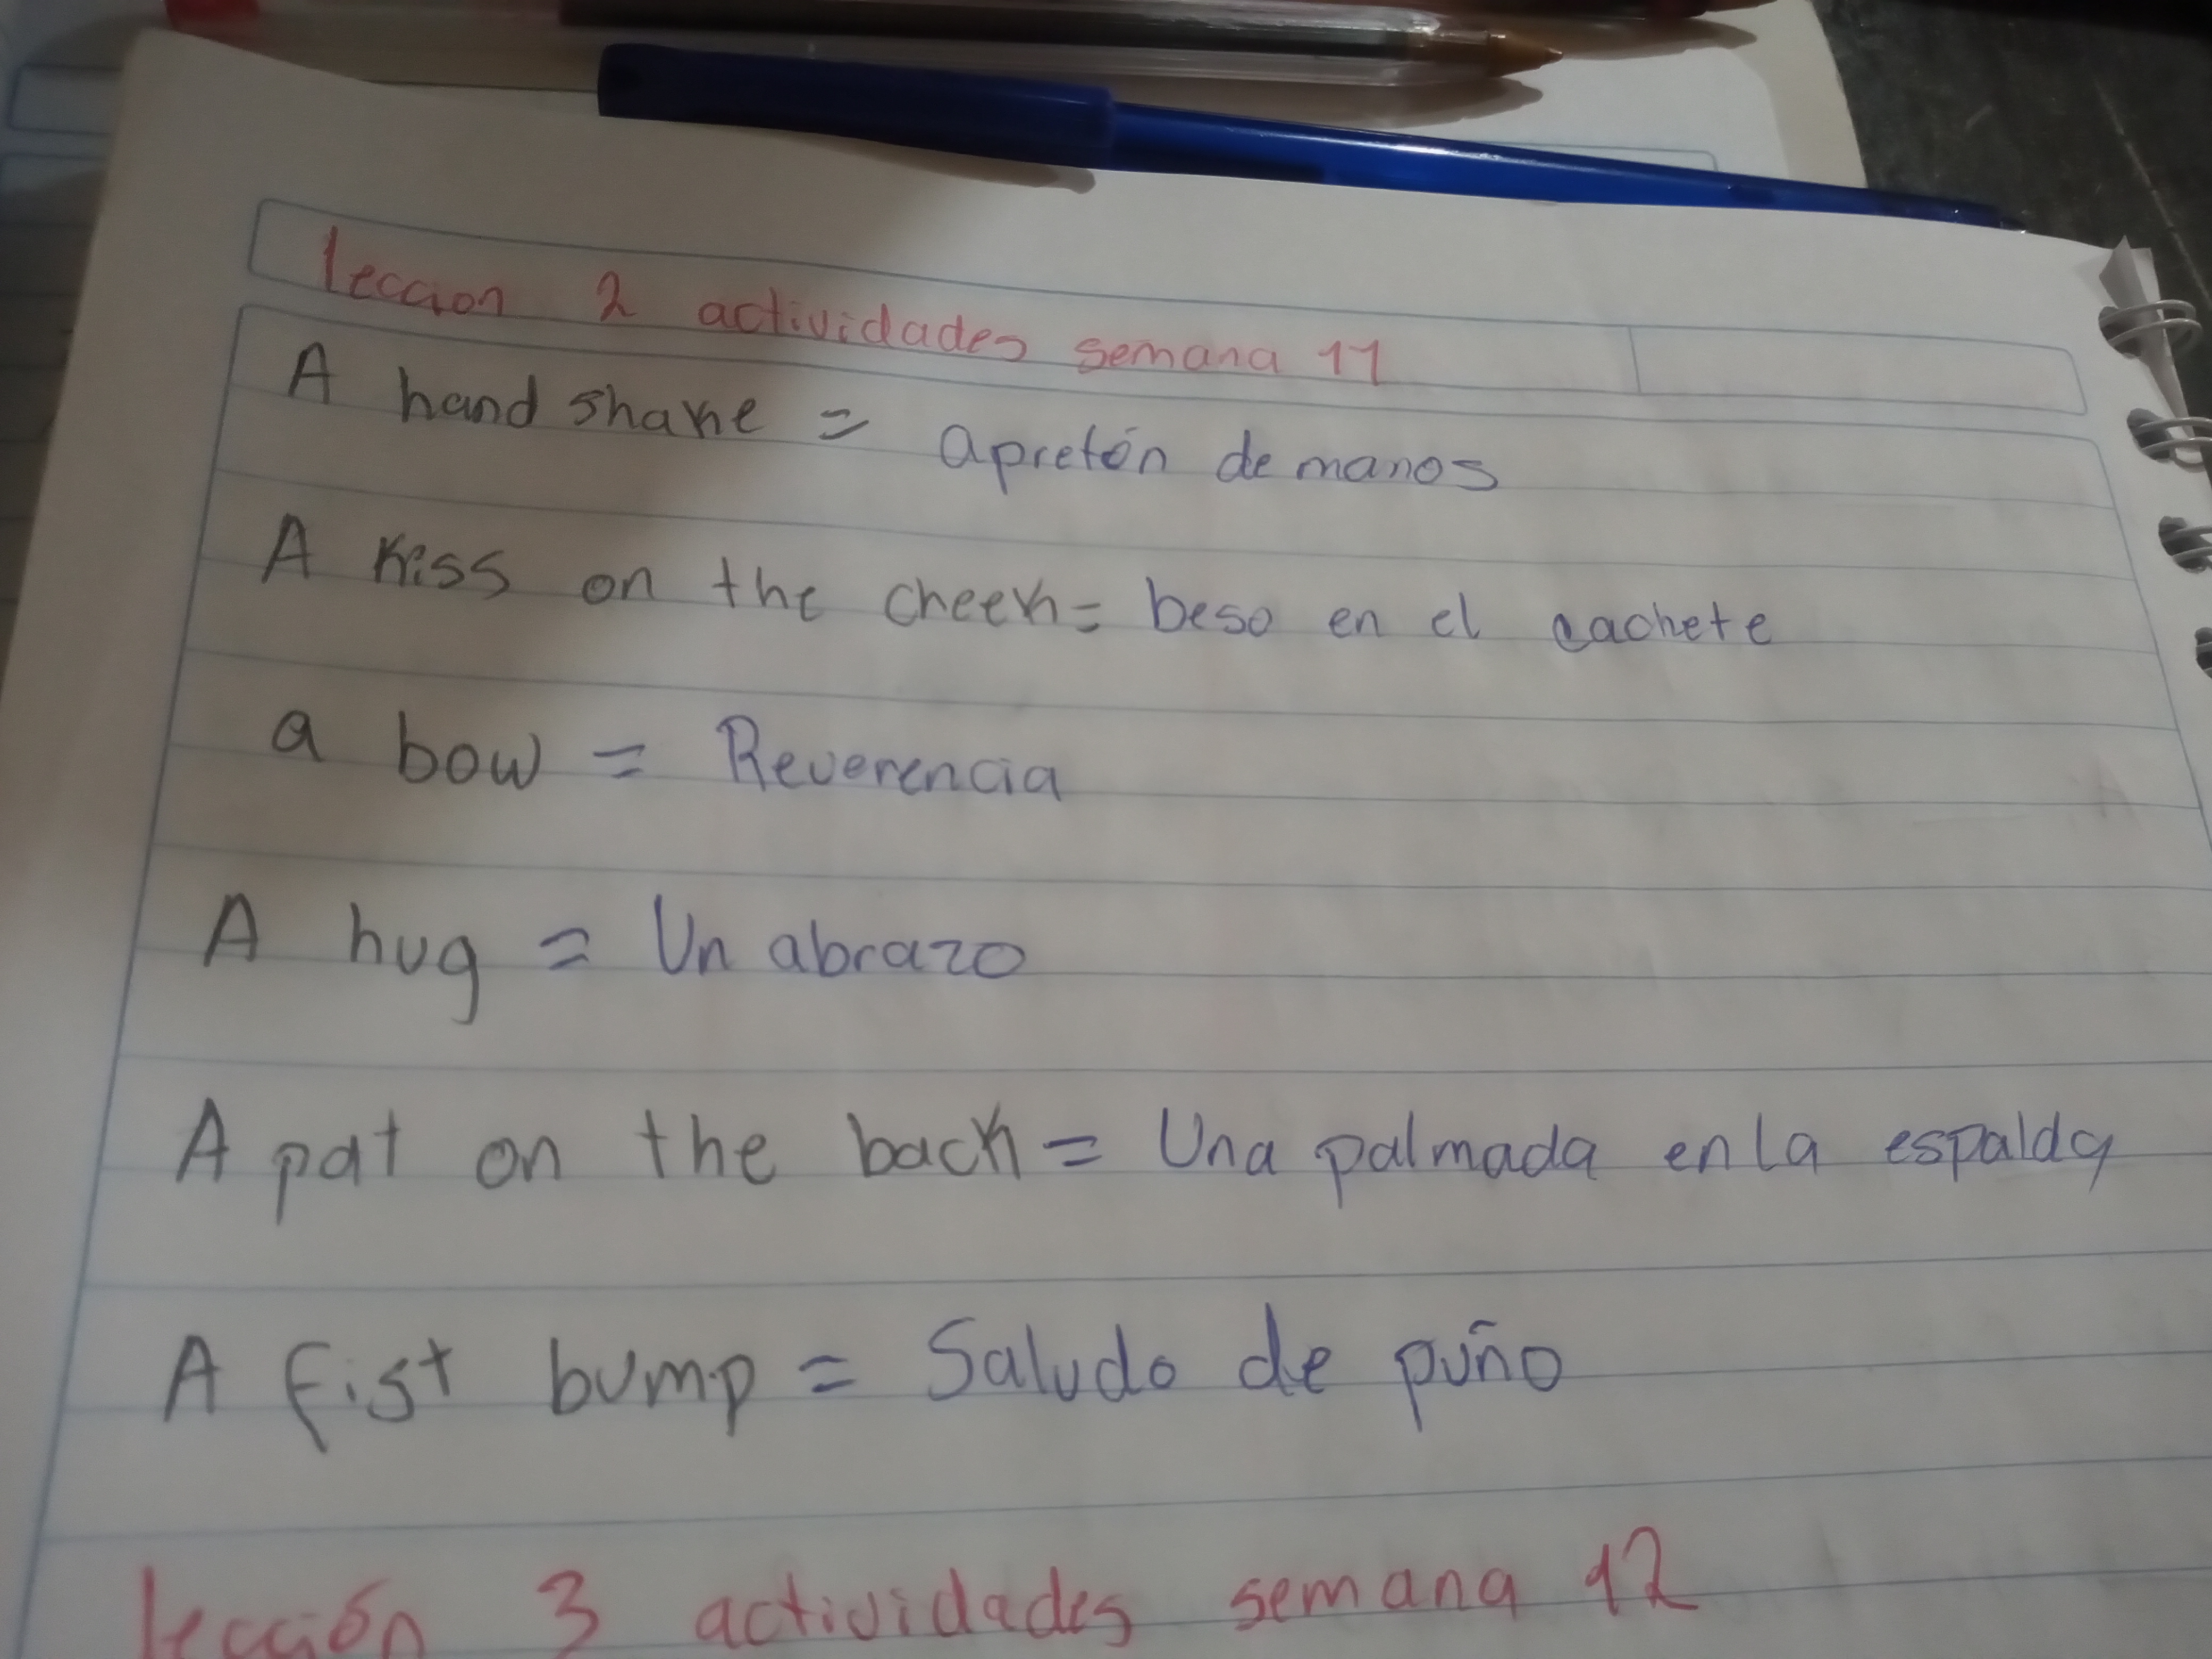 leccion 2 actividades semana 11
A hand shake = apretón de manos
A kiss on the cheek = beso en el cachete
a bow = Reverencia
A hug = Un abrazo
A pat on the back = Una palmada en la espalda
A fist bump = Saludo de puño
lección 3 actividades semana 12